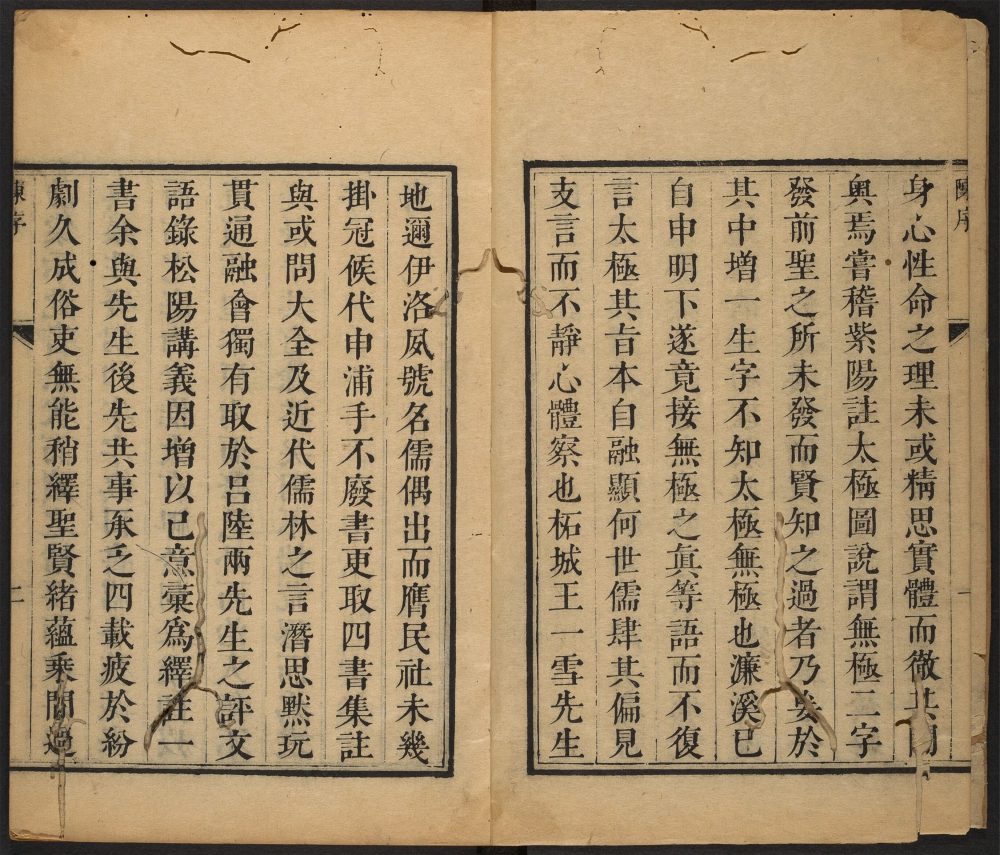 陳序
一
身心性命之理未或精思實體而徹其閫
奥焉嘗稽紫陽註太極圖說謂無極二字
發前聖之所未發而賢知之過者乃妄於
其中增一生字不知太極無極也濂溪已
自申明下遂竟接無極之眞等語而不復
言太極其旨本自融顯何世儒肆其偏見
支言而不靜心體察也柘城王一雪先生
地邇伊洛夙號名儒偶出而膺民社未幾
掛冠候代申浦手不廢書更取四書集註
與或問大全及近代儒林之言潛思默玩
貫通融會獨有取於呂陸兩先生之評文
語錄松陽講義因增以己意彙爲繹註一
書余與先生後先共事承乏四載疲於紛
劇久成俗吏無能稍繹聖賢緒蘊乘間過
陳序
二